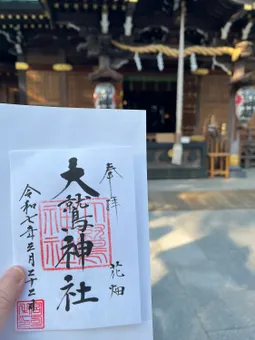 奉拝
花畑
大鷲神社
令和七年三月二十二日